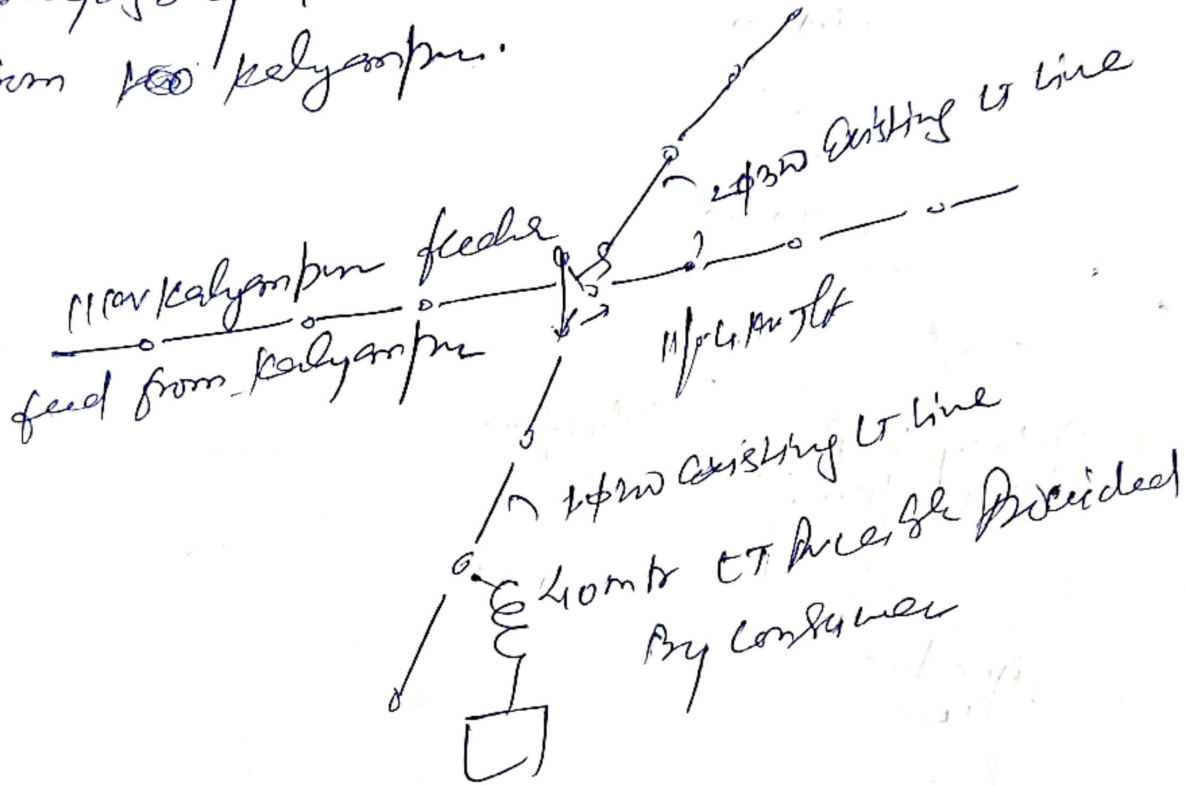 from Kalyanpur.
2φ3W Existing LT Line
11KV Kalyanpur feeder
feed from Kalyanpur
1φ2W Existing LT Line
40mtr LT
Provided
By Consumer